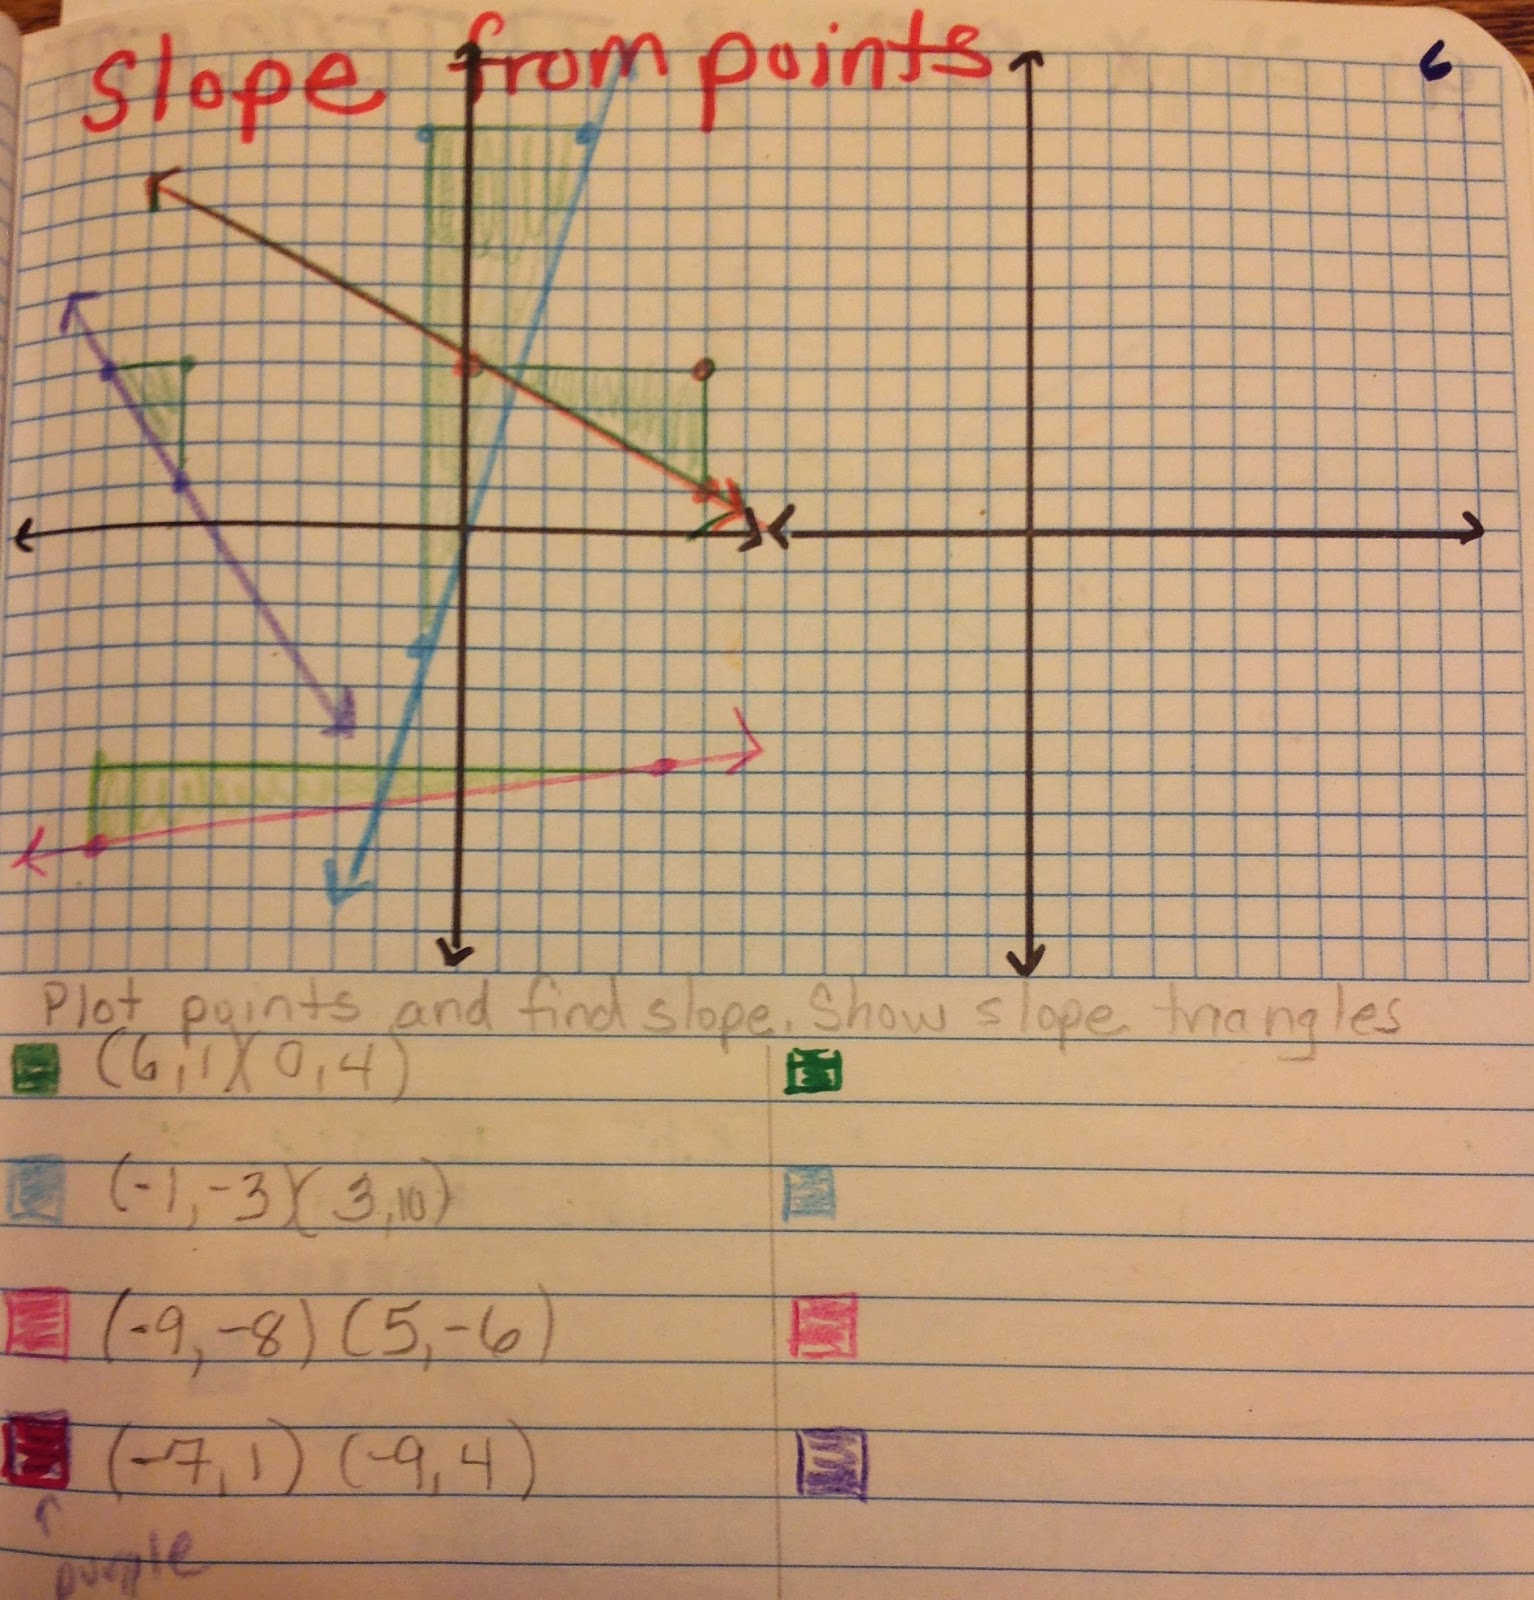 Slope from points
6
Plot points and find slope. Show slope triangles
(6,1)(0,4)
(-1,-3)(3,10)
(-9,-8)(5,-6)
(-7,1)(-9,4)
purple